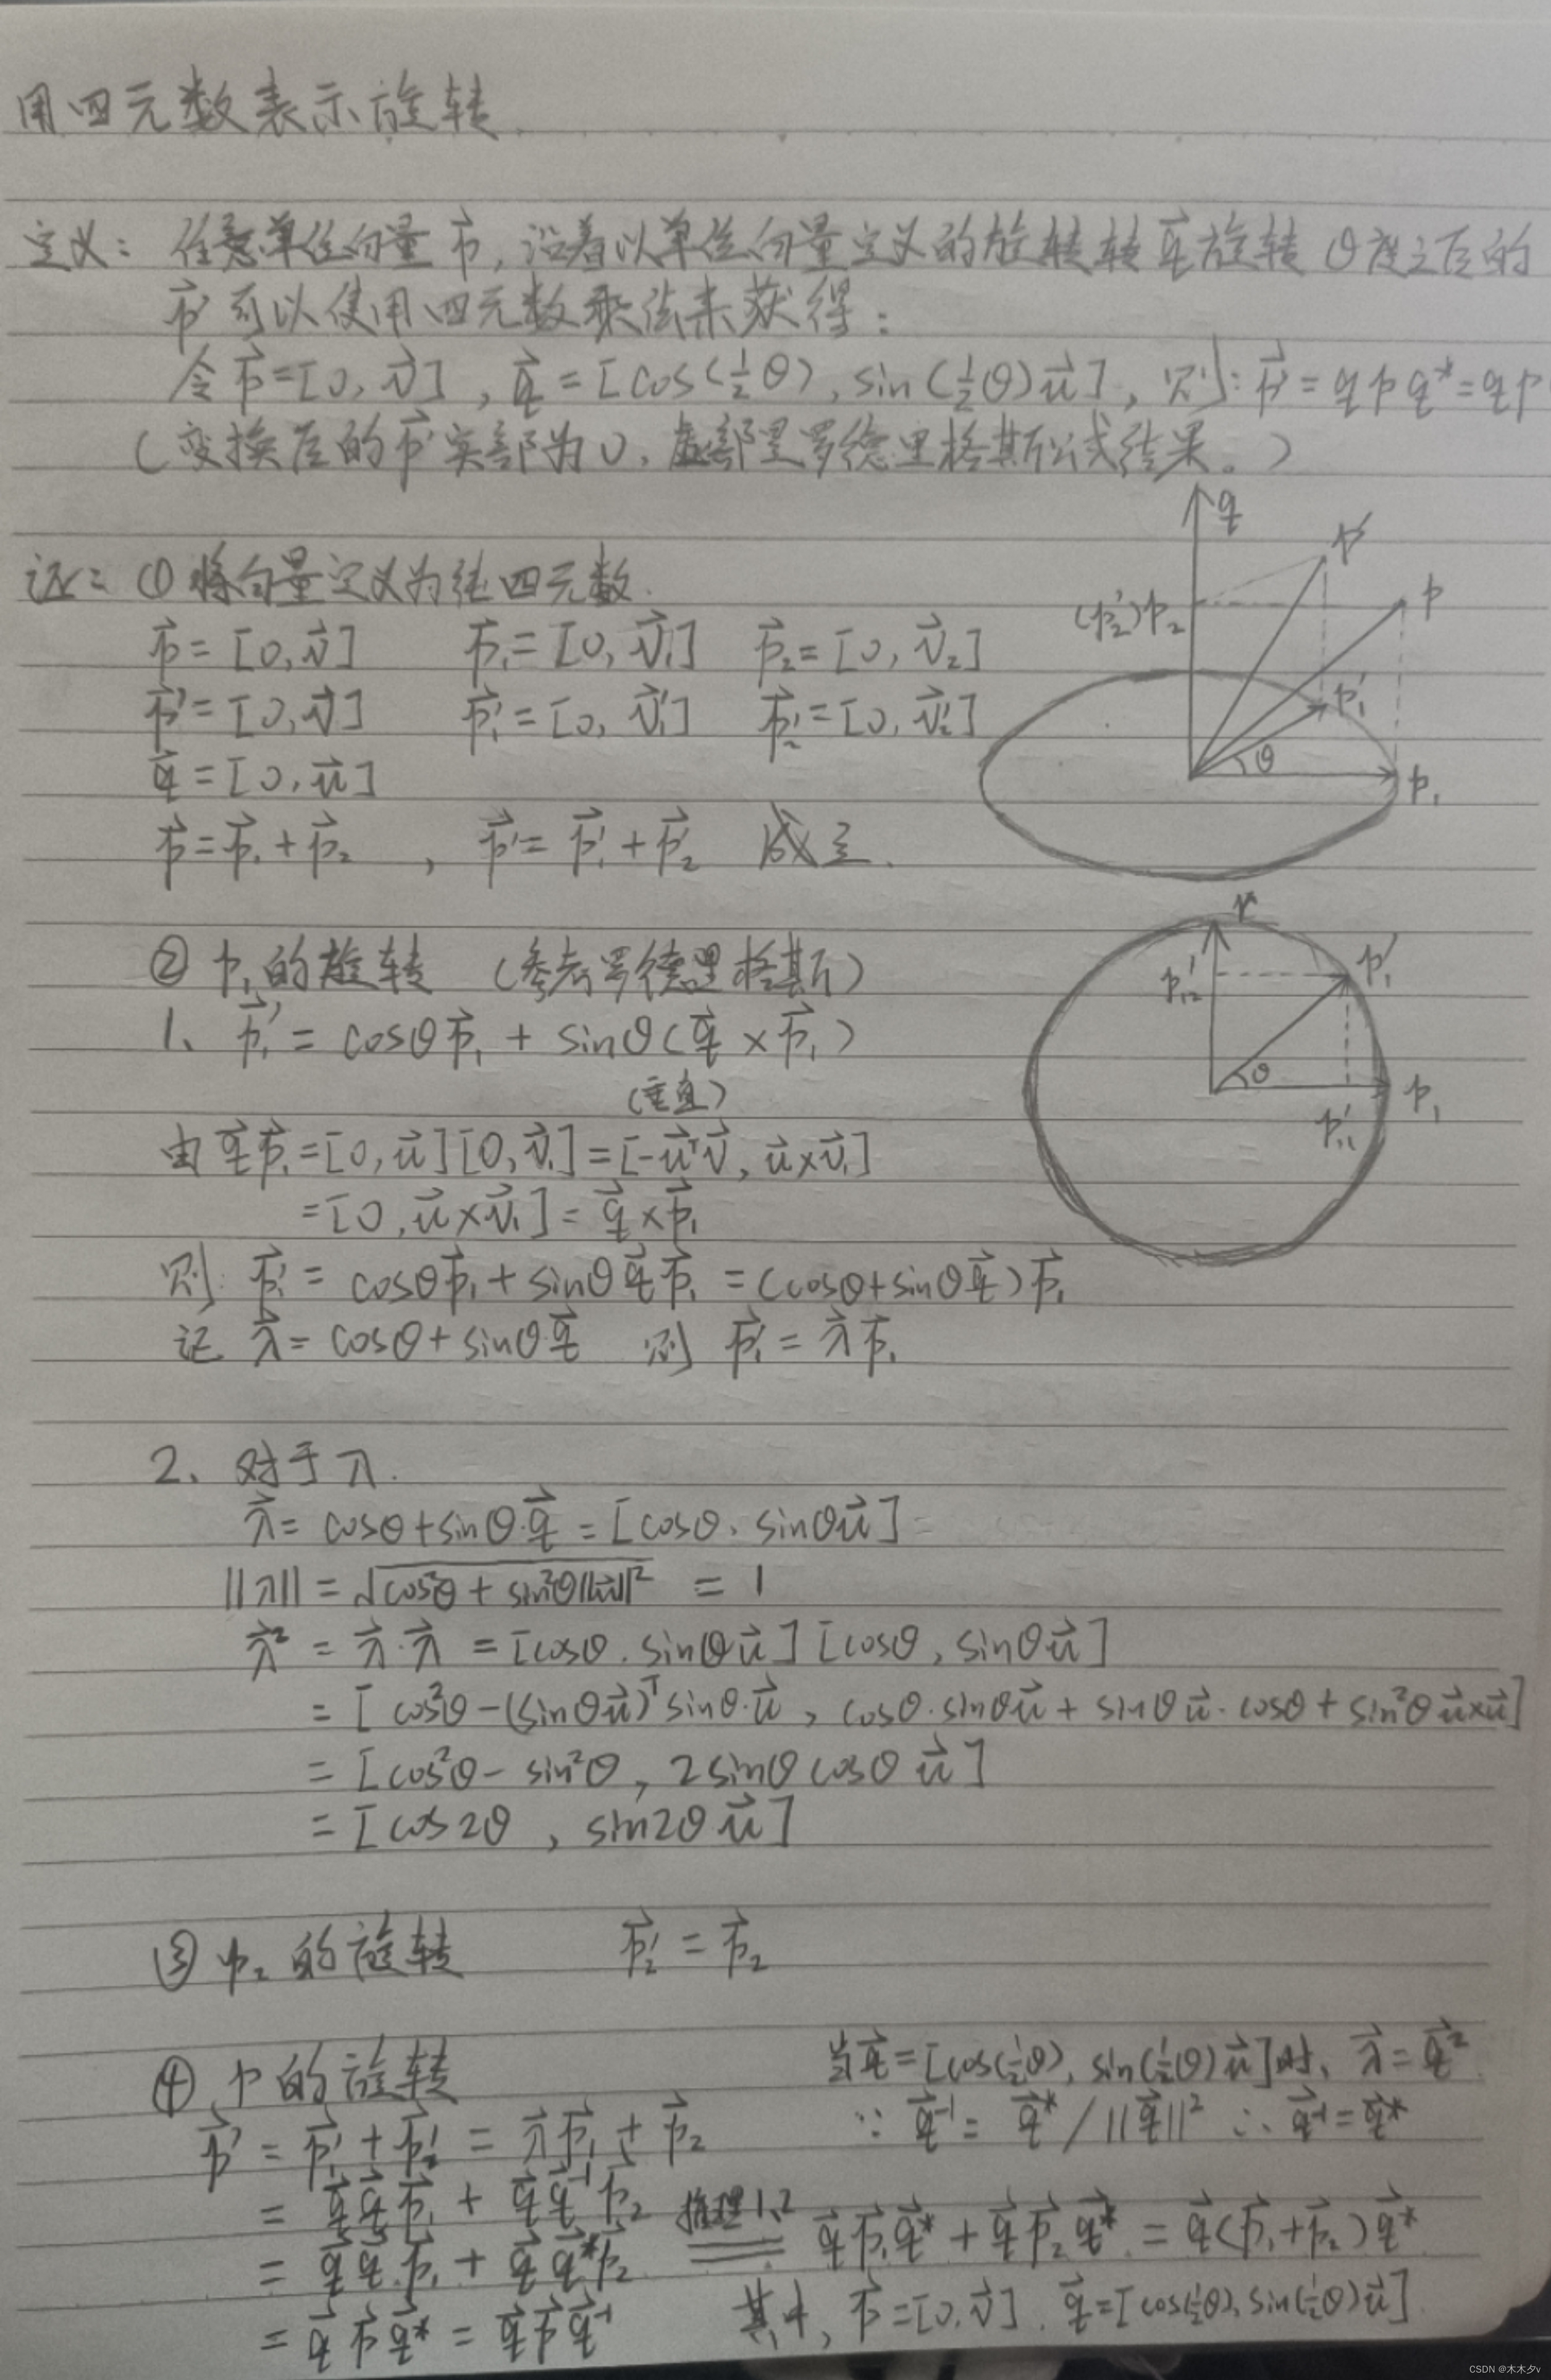 用四元数表示旋转.
定义: 任意单位向量 p⃗, 沿着以单位向量定义的旋转转 q⃗ 旋转 θ度之后的
p⃗' 可以使用四元数乘法来获得:
令 p⃗=[0, v⃗], q⃗=[cos(½θ), sin(½θ)u⃗], 则: p⃗'=qpq*=qp
(变换后的 p⃗' 实部为0, 虚部是罗德里格斯公式结果。)
q
p'
p
(p₂')p₂
p₁'
θ
p₁
证: ① 将向量定义为纯四元数.
p⃗=[0, v⃗] p⃗₁=[0, v⃗₁] p⃗₂=[0, v⃗₂]
p⃗'=[0, v⃗'] p⃗₁'=[0, v⃗₁'] p⃗₂'=[0, v⃗₂']
q⃗=[0, u⃗]
p⃗=p⃗₁+p⃗₂, p⃗'=p⃗₁'+p⃗₂' 成立.
② p₁的旋转 (参考罗德里格斯)
1、 p⃗₁'=cosθp⃗₁+sinθ(q⃗×p⃗₁)
(垂直)
由 q⃗p⃗₁=[0, u⃗][0, v⃗₁]=[-u⃗ᵀv⃗, u⃗×v⃗₁]
=[0, u⃗×v⃗₁]=q⃗×p⃗₁
则: p⃗₁'=cosθp⃗₁+sinθq⃗p⃗₁=(cosθ+sinθq⃗)p⃗₁
记 λ⃗=cosθ+sinθ·q⃗ 则 p⃗₁'=λ⃗p⃗₁
p₁₂'
p₁'
θ
p₁
p₁₁'
2、对于λ.
λ⃗=cosθ+sinθ·q⃗=[cosθ, sinθu⃗]
||λ||=√(cos²θ+sin²θ||u⃗||²)=1
λ⃗²=λ⃗·λ⃗=[cosθ, sinθu⃗][cosθ, sinθu⃗]
=[cos²θ-(sinθu⃗)ᵀsinθ·u⃗, cosθ·sinθu⃗+sinθu⃗·cosθ+sin²θu⃗×u⃗]
=[cos²θ-sin²θ, 2sinθcosθu⃗]
=[cos2θ, sin2θu⃗]
③ p₂的旋转 p⃗₂'=p⃗₂
④ p的旋转
p⃗'=p⃗₁'+p⃗₂'=λ⃗p⃗₁+p⃗₂
=q⃗q⃗p⃗₁+q⃗q⃗⁻¹p⃗₂
=q⃗q⃗p⃗₁+q⃗q⃗*p⃗₂
推理1,2
q⃗p⃗₁q⃗*+q⃗p⃗₂q⃗*=q⃗(p⃗₁+p⃗₂)q⃗*
=q⃗p⃗q⃗*=q⃗p⃗q⃗⁻¹
当q⃗=[cos(½θ), sin(½θ)u⃗]时, λ⃗=q⃗²
∵ q⃗⁻¹=q⃗*/||q⃗||² ∴ q⃗⁻¹=q⃗*
其中, p⃗=[0, v⃗], q⃗=[cos(½θ), sin(½θ)u⃗]
CSDN @木木夕v